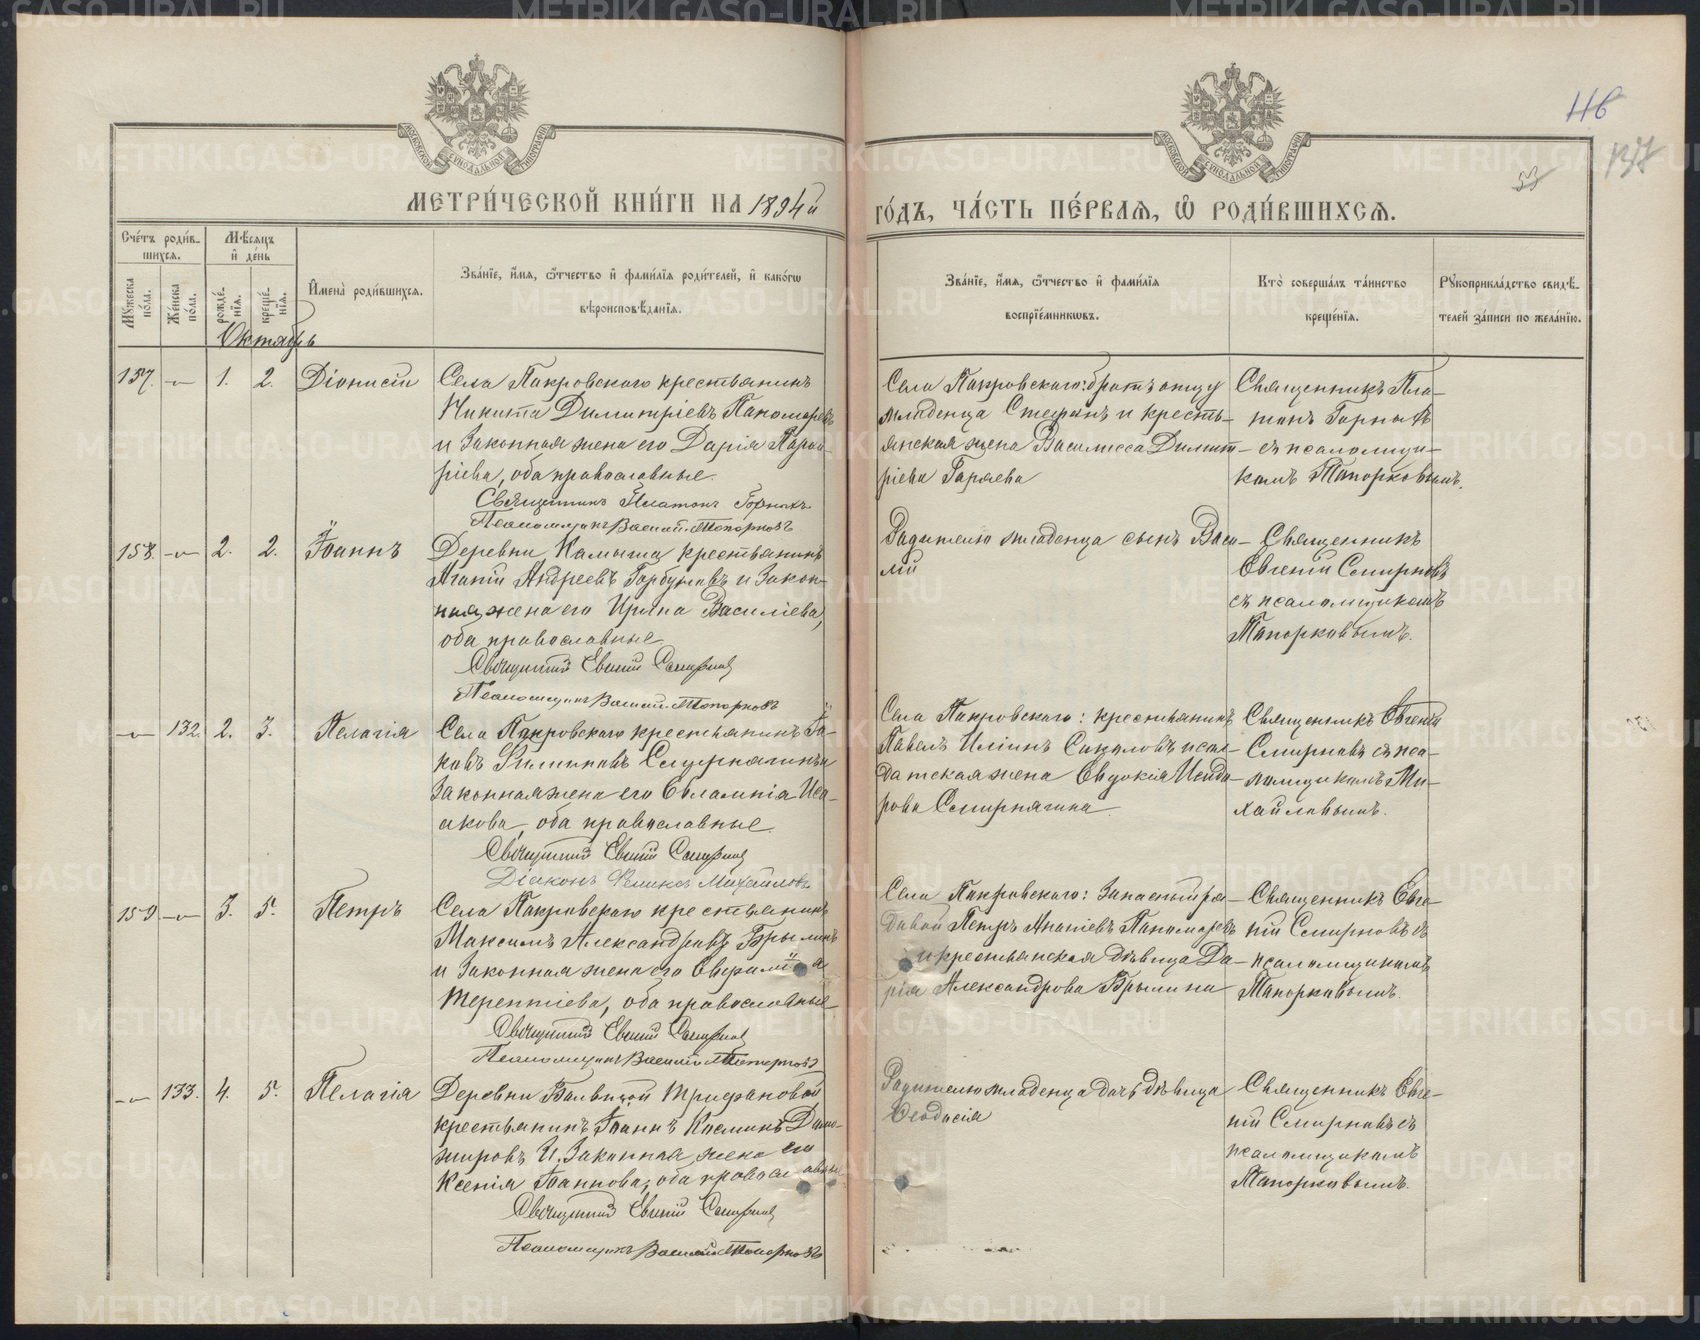 Нб
137
53
МОСКОВСКОЙ СѴНОДАЛЬНОЙ ТИПОГРАФІИ
МОСКОВСКОЙ СѴНОДАЛЬНОЙ ТИПОГРАФІИ
МЕТРИ́ЧЕСКОЙ КНИ́ГИ НА 1894й
ГО́ДЪ, ЧА́СТЬ ПЕ́РВАЯ, Ѽ РОДИ́ВШИХСЯ.
Сче́тъ роди́в-
шихся.
Мꙋ́жеска по́ла.
Же́нска по́ла.
Мѣ́сяцъ
и҆ де́нь
рожде́нїя.
креще́нїя.
И҆мена̀ роди́вшихся.
Зва́нїе, и҆́мя, ѻ҆́тчество и҆ фами́лїя роди́телей, и҆ како́гѡ
вѣроисповѣ́данїя.
Зва́нїе, и҆́мя, ѻ҆́тчество и҆ фами́лїя
воспрїе́мникѡвъ.
Кто̀ соверша́лъ та́инство
креще́нїя.
Рꙋкоприкла́дство свидѣ́-
телей за́писи по жела́нїю.
Октябрь
157. — 1. 2. Діонисій
Села Покровскаго крестьянинъ
Никита Димитріевъ Пономаревъ
и законная жена его Дарія
ріева, оба православные.
Священникъ Платонъ Горныхъ
Псаломщикъ Василій Топорковъ
Села Покровскаго: братъ отцу
младенца Стефанъ и кресть-
янская жена Василисса Димит-
ріева Горяева
Священникъ Пла-
тонъ Горныхъ
съ псаломщи-
комъ Топорковымъ.
158. — 2. 2. Іоаннъ
Деревни Камыша крестьянинъ
Агапій Андреевъ Горбуновъ и закон-
ная жена его Ирина Василіева,
оба православные
Священникъ Евгеній Смирновъ
Псаломщикъ Василій Топорковъ
Родителю младенца сынъ Васи-
лій
Священникъ
Евгеній Смирновъ
съ псаломщикомъ
Топорковымъ.
— 132. 2. 3. Пелагія
Села Покровскаго крестьянинъ Іа-
ковъ Филиповъ Смирнягинъ и
законная жена его Евлампія Иса-
акова, оба православные.
Священникъ Евгеній Смирновъ
Діаконъ Феликсъ Михайловъ
Села Покровскаго: крестьянинъ
Павелъ Иліинъ Соколовъ и сол-
датская жена Евдокія Исидо-
рова Смирнягина
Священникъ Евгеній
Смирновъ съ пса-
ломщикомъ Ми-
хайловымъ.
159. — 3. 5. Петръ
Села Покровскаго крестьянинъ
Максимъ Александровъ Брылинъ
и законная жена его Евфимія
Терентіева, оба православные
Священникъ Евгеній Смирновъ
Псаломщикъ Василій Топорковъ
Села Покровскаго: запасный ря-
довой Петръ Ананіевъ Пономаревъ
и крестьянская дѣвица Да-
рія Александрова Брылина
Священникъ Евге-
ній Смирновъ съ
псаломщикомъ
Топорковымъ.
— 133. 4. 5. Пелагія
Деревни Больщой Трифановой
крестьянинъ Іоаннъ Косминъ Домо-
жировъ и законная жена его
Ксенія Іоаннова, оба православные
Священникъ Евгеній Смирновъ
Псаломщикъ Василій Топорковъ
Родителю младенца дочь дѣвица
Ѳеодосія
Священникъ Евге-
ній Смирновъ съ
псаломщикомъ
Топорковымъ.
METRIKI.GASO-URAL.RU